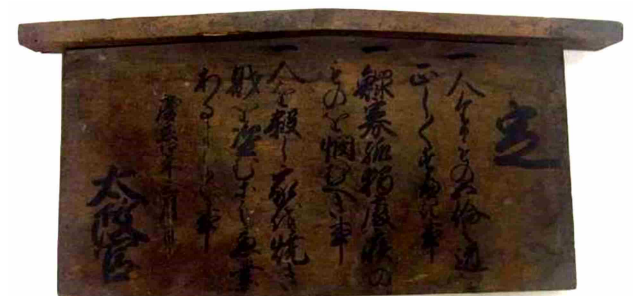 定
一 人たるもの五倫之道
正しくすへき事
一 鰥寡孤獨廢疾の
ものを憫むへき事
一 人を殺し家を焼き
財を盗む等之悪業
あるましく事
慶應四年三月
太政官